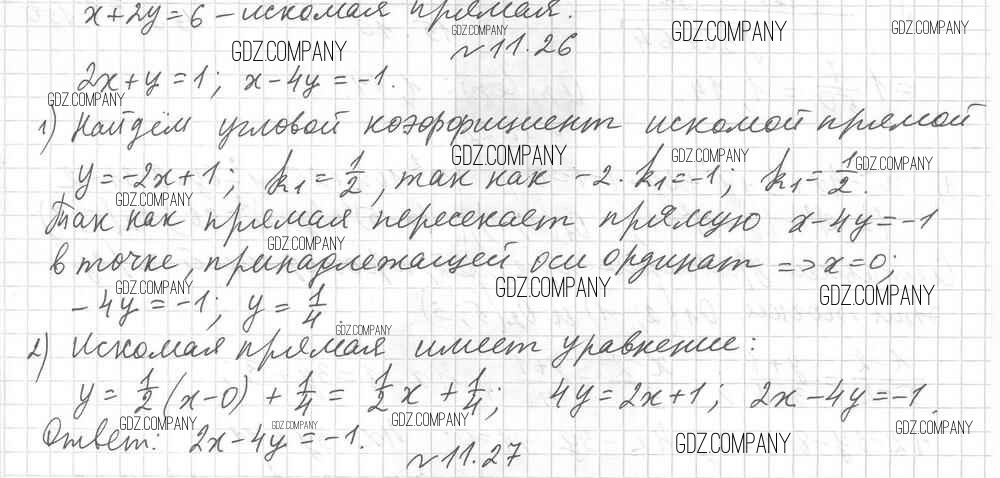 x+2y=6 – искомая прямая.
GDZ.COMPANY GDZ.COMPANY GDZ.COMPANY GDZ.COMPANY
№11.26
2x+y=1; x-4y=-1.
GDZ.COMPANY
1) Найдём угловой коэффициент искомой прямой
GDZ.COMPANY GDZ.COMPANY GDZ.COMPANY
y=-2x+1; k₁=1/2, так как -2·k₁=-1; k₁=1/2.
GDZ.COMPANY
Так как прямая пересекает прямую x-4y=-1
GDZ.COMPANY
в точке, принадлежащей оси ординат => x=0;
GDZ.COMPANY GDZ.COMPANY GDZ.COMPANY
-4y=-1; y=1/4.
GDZ.COMPANY
2) Искомая прямая имеет уравнение:
y=1/2(x-0)+1/4=1/2x+1/4; 4y=2x+1; 2x-4y=-1.
GDZ.COMPANY GDZ.COMPANY GDZ.COMPANY GDZ.COMPANY
Ответ: 2x-4y=-1.
GDZ.COMPANY
№11.27